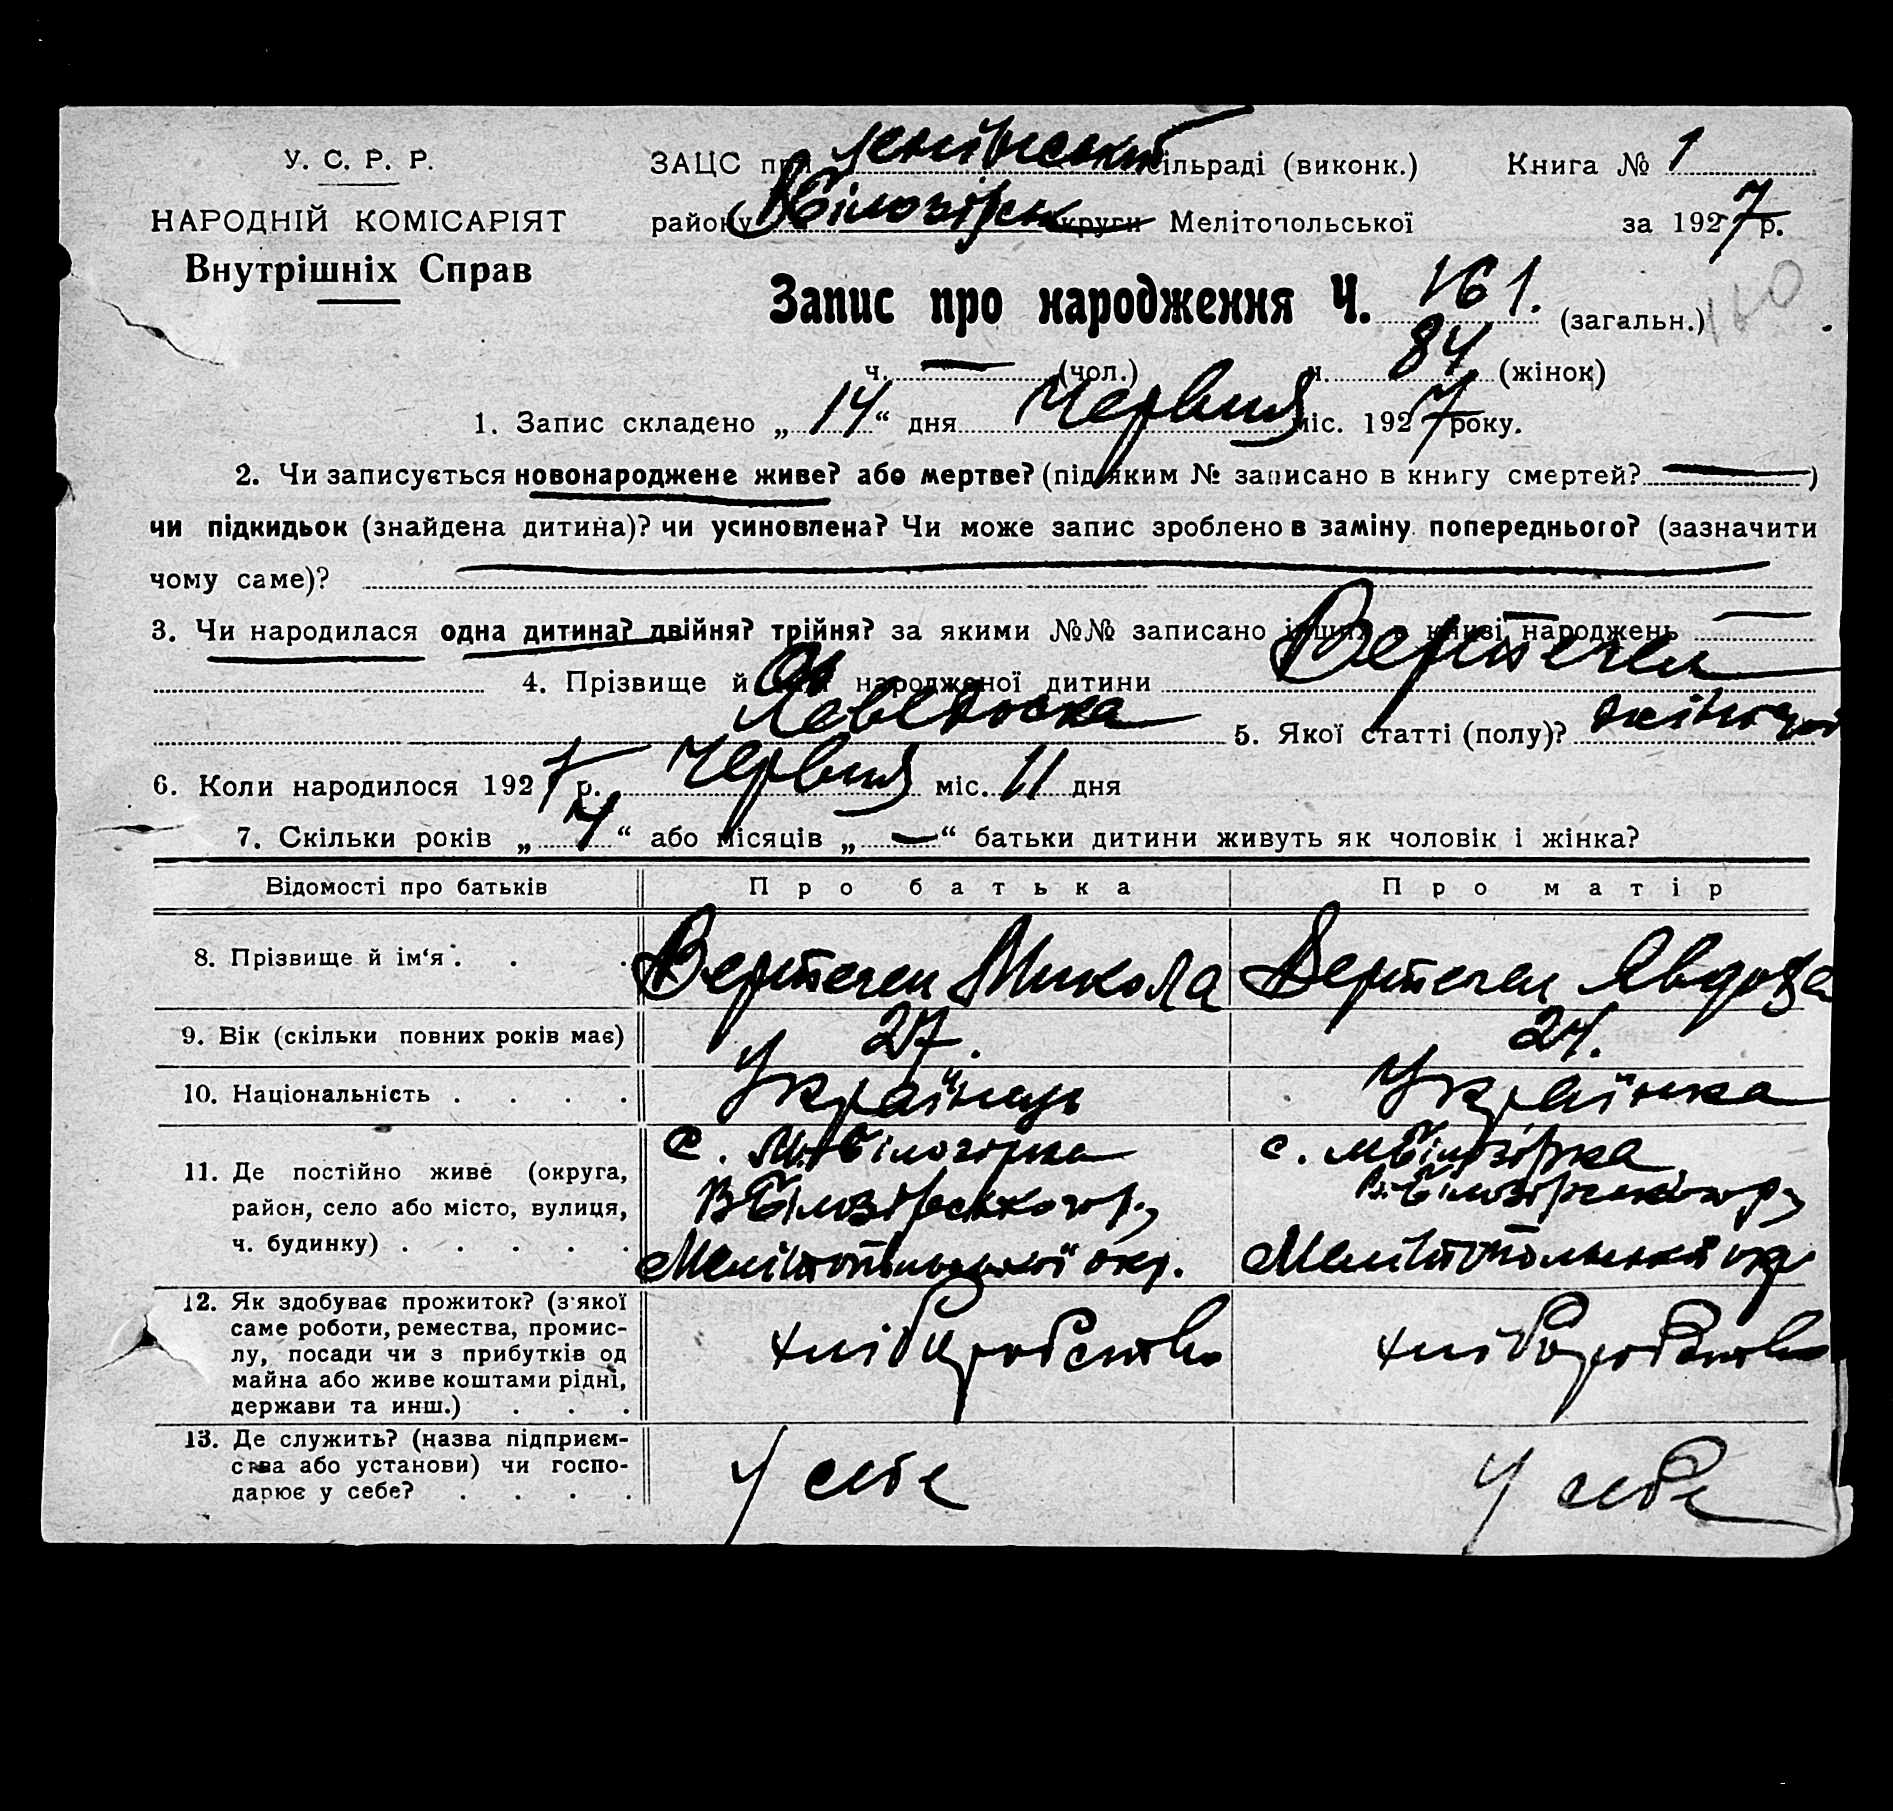 У. С. Р. Р.
НАРОДНІЙ КОМІСАРІЯТ
Внутрішніх Справ
ЗАЦС при сільраді (виконк.) Книга № 1
району В Білозірськ округи Мелітопольської за 1927 р.
Запис про народження Ч. 161. (загальн.)
ч. — (чол.) ч. 84 (жінок)
1. Запис складено „14“ дня Червня міс. 1927 року.
2. Чи записується новонароджене живе? або мертве? (під яким № записано в книгу смертей? — )
чи підкидьок (знайдена дитина)? чи усиновлена? Чи може запис зроблено в заміну попереднього? (зазначити
чому саме)?
3. Чи народилася одна дитина? двійня? трійня? за якими №№ записано інших в книзі народжень —
4. Прізвище й народженої дитини Вертегел
5. Якої статті (полу)? жіночої
6. Коли народилося 1927 р. Червня міс. 11 дня
7. Скільки років „4“ або місяців „—“ батьки дитини живуть як чоловік і жінка?
Відомості про батьків Про батька Про матір
8. Прізвище й ім‘я . . . Вертегел Микола Вертегел Явдоха
9. Вік (скільки повних років має) 27. 24.
10. Національність . . . . Українець Українка
11. Де постійно живе (округа,
район, село або місто, вулиця,
ч. будинку) . . . . .
с. М Білозірка с. М Білозірка
В Білозірського р. В. Білозірського р.
Мелітопільської окр. Мелітопольської окр
12. Як здобуває прожиток? (з якої
саме роботи, ремества, промис-
лу, посади чи з прибутків од
майна або живе коштами рідні,
держави та инш.) . . .
хліборобство хліборобство
13. Де служить? (назва підприєм-
ства або установи) чи госпо-
дарює у себе? . . . .
У себе У себе